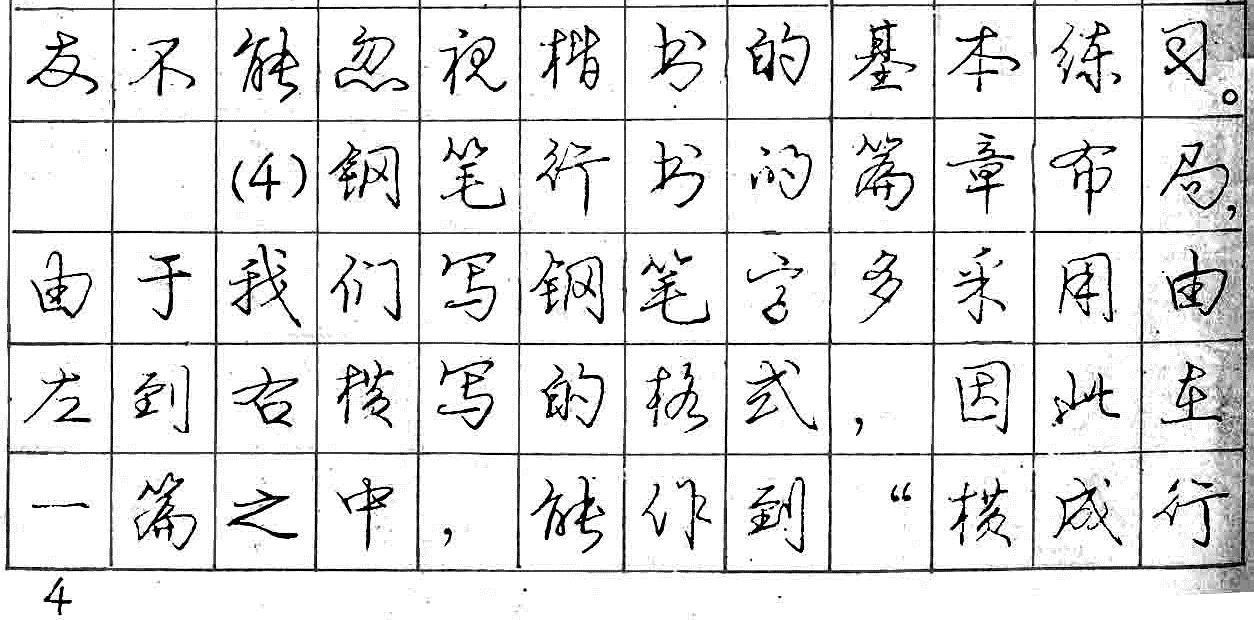 友不能忽视楷书的基本练习。
(4)钢笔行书的篇章布局,
由于我们写钢笔字多采用由
左到右横写的格式,因此在
一篇之中,能作到“横成行
4